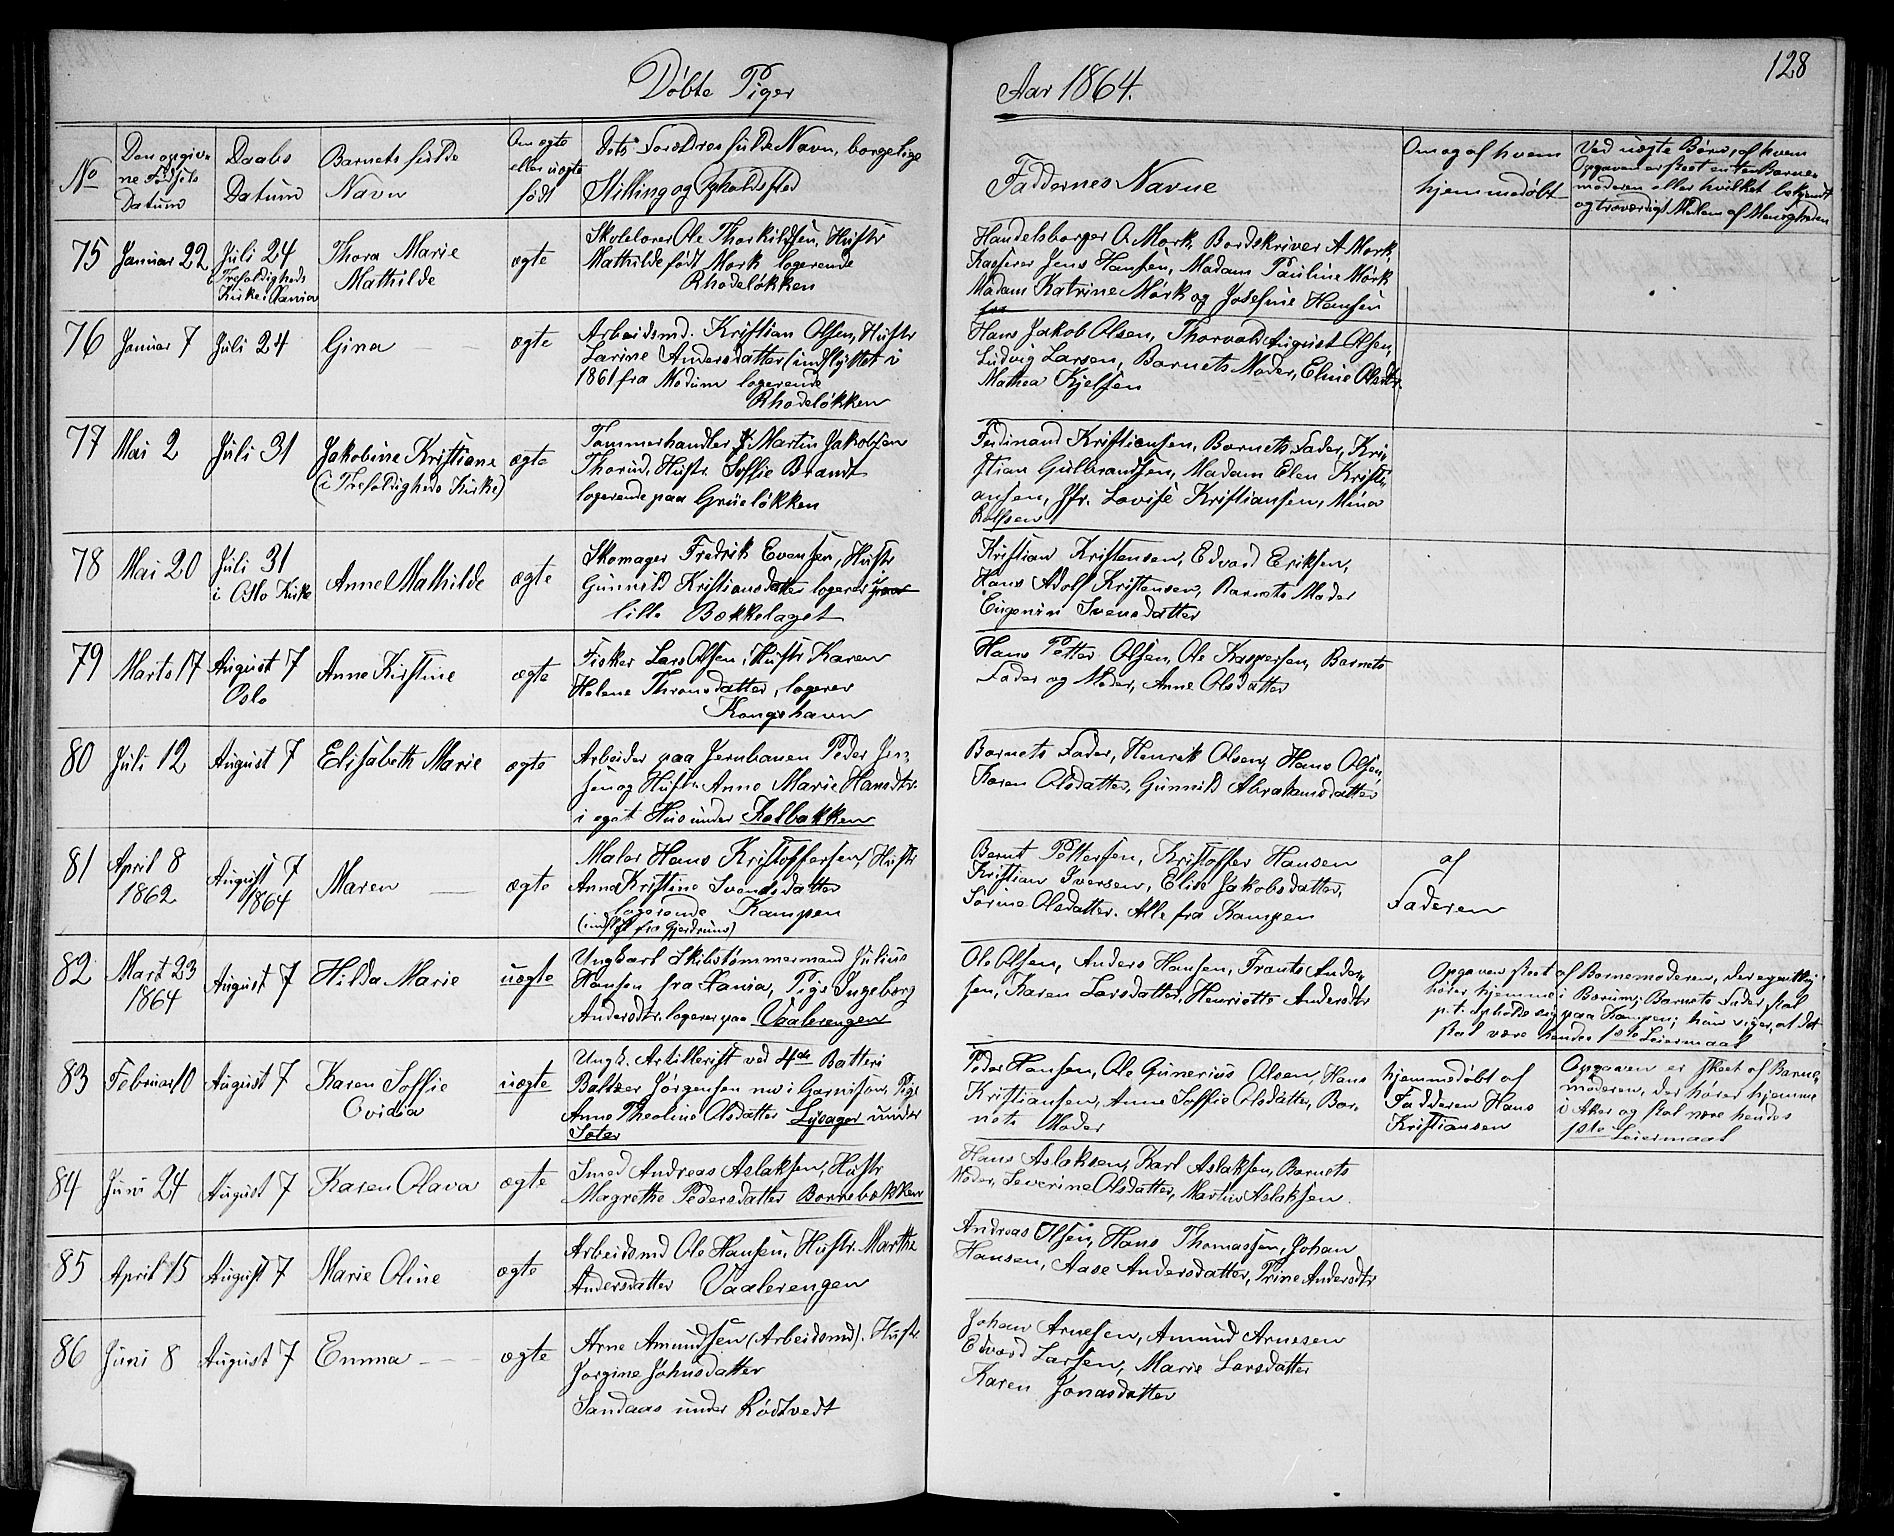 128
Døbte Piger
Aar 1864.
No
Den opgiv-
ne Fødsels
Datum
Daabs
Datum
Barnets fulde
Navn
Om ægte
eller uægte
født
Dets Forældres fulde Navn, borgelige
Stilling og Opholdssted
Faddernes Navne
Om og af hvem
hjemmedøbt
Ved uægte Børn, af hvem
Opgaven er skeet enten Barne-
moderen eller hvilket bekjendt
og troværdigt Medlem af Menigheden
75
Januar 22
Juli 24
Trefoldigheds
Kirke i Xania
Thora Marie
Mathilde
ægte
Skolelærer Ole Thorkildsen, Hustr
Mathilde født Mørk logerende
Rhodeløkken
Handelsborger O. Mørk, Bordskriver A Mørk,
Kasserer Jens Hansen, Madam Pauline Mørk
Madam Katrine Mørk og Josefine Hansen
76
Januar 7
Juli 24
Gina
ægte
Arbeidsmd. Kristian Olsen, Hustr
Larine Andersdatter (indflyttet i
1861 fra Modum logerende
Rhodeløkken
Hans Jakob Olsen, Thorvald August Olsen,
Ludvig Larsen, Barnets Moder, Eline Olsdtr.
Mathea Kjelsen
77
Mai 2
Juli 31
Jakobine Kristiane
(i Trefoldigheds Kirke)
ægte
Tømmerhandler J. Martin Jakobsen
Thorud, Hustr. Soffie Brandt
logerende paa Grüeløkken
Ferdinand Kristiansen, Barnets Fader, Kri-
stian Gulbrandsen, Madam Elen Kristi-
ansen, Jfr. Lovise Kristiansen, Mina
Rolfsen
78
Mai 20
Juli 31
i Oslo Kirke
Anne Mathilde
ægte
Skomager Fredrik Evensen, Hustr
Gunnild Kristiansdatter logerer i paa
lille Bækkelaget
Kristian Kristensen, Edvard Eriksen,
Hans Adolf Kristensen, Barnets Moder
Eugenia Svensdatter
79
Marts 17
August 7
Oslo
Anne Kirstine
ægte
Fisker Lars Olsen, Hustr Karen
Helene Thronsdatter, logerer
Kongshavn
Hans Petter Olsen, Ole Kaspersen, Barnets
Fader og Moder, Anne Olsdatter
80
Juli 12
August 7
Elisabeth Marie
ægte
Arbeider paa Jernbanen Peder Jen-
sen og Hustr. Anne Marie Hansdtr.
i eget Hus under Kalbakken
Barnets Fader, Henrik Olsen, Hans Olsen,
Karen Olsdatter, Gunnild Abrahamsdatter
81
April 8
1862
August 7
1864
Maren
ægte
Maler Hans Kristoffersen, Hustr
Anna Kristine Svendsdatter
logerende Kampen
(indfl fra Gjerdrum)
Bernt Pettersen, Kristoffer Hansen
Kristian Iversen, Elise Jakobsdatter,
Sørine Olsdatter. Alle fra Kampen
af
Faderen
82
Mart 23
1864
August 7
Hilda Marie
uægte
Ungkarl Skibstømmermand Julius
Hansen fra Xania, Pige Ingeborg
Andersdtr. logerer paa Vaalerengen
Ole Olsen, Anders Hansen, Frants Ander-
sen, Karen Larsdatter, Henriette Andersdtr
Opgaven skeet af Barnemoderen, der egentlig
hører hjemme i Bærum; Barnets Fader skal
p.t. opholde sig paa Kampen; hun siger, at det
skal være hendes 1ste Leiermaal
83
Februar 10
August 7
Karen Soffie
Ovidia
uægte
Ungk. Artillerist ved 4de Batteri
Baltzer Jørgensen nu i Garnison, Pige
Anne Theoline Olsdatter Lysager under
Sater
Peder Hansen, Ole Gunerius Olsen, Hans
Kristiansen, Anne Soffie Olsdatter, Bar-
nets Moder
hjemmedøbt af
Fadderen Hans
Kristiansen
Opgaven er skeet af Barne-
moderen, der hører hjemme
i Aker og skal være hendes
1ste Leiermaal
84
Juni 24
August 7
Karen Olava
ægte
Smed Andreas Aslaksen, Hustr
Magrethe Pedersdatter Bornebakken
Hans Aslaksen, Karl Aslaksen, Barnets
Moder, Severine Olsdatter, Martin Aslaksen.
85
April 15
August 7
Marie Oline
ægte
Arbeidsmd Ole Hansen, Hustr. Marthe
Andersdatter Vaalerengen
Andreas Olsen, Hans Thomassen, Johan
Hansen, Aase Andersdatter, Trine Andersdtr
86
Juni 8
August 7
Emma
ægte
Arne Amundsen (Arbeidsmd). Hustr.
Jørgine Johnsdatter
Sandaas under Rødtvedt
Johan Arnesen, Amund Arnesen
Edvard Larsen, Marie Larsdatter
Karen Jonasdatter